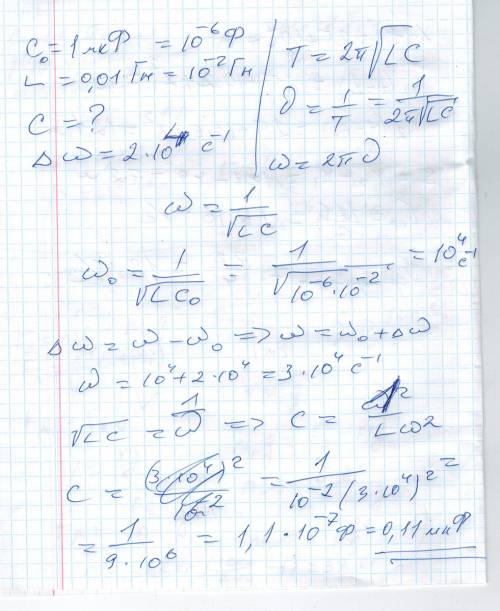 C₀ = 1 мкФ = 10⁻⁶ Ф
L = 0,01 Гн = 10⁻² Гн
C = ?
Δω = 2·10⁴ c⁻¹
T = 2π√LC
ν = 1/T = 1/(2π√LC)
ω = 2πν
ω = 1/√LC
ω₀ = 1/√LC₀ = 1/√(10⁻⁶·10⁻²) = 10⁴ c⁻¹
Δω = ω − ω₀ => ω = ω₀ + Δω
ω = 10⁴ + 2·10⁴ = 3·10⁴ c⁻¹
√LC = 1/ω => C = 1/(Lω²)
C = = 1/(10⁻²(3·10⁴)²) =
= 1/(9·10⁶) = 1,1·10⁻⁷ Ф = 0,11 мкФ